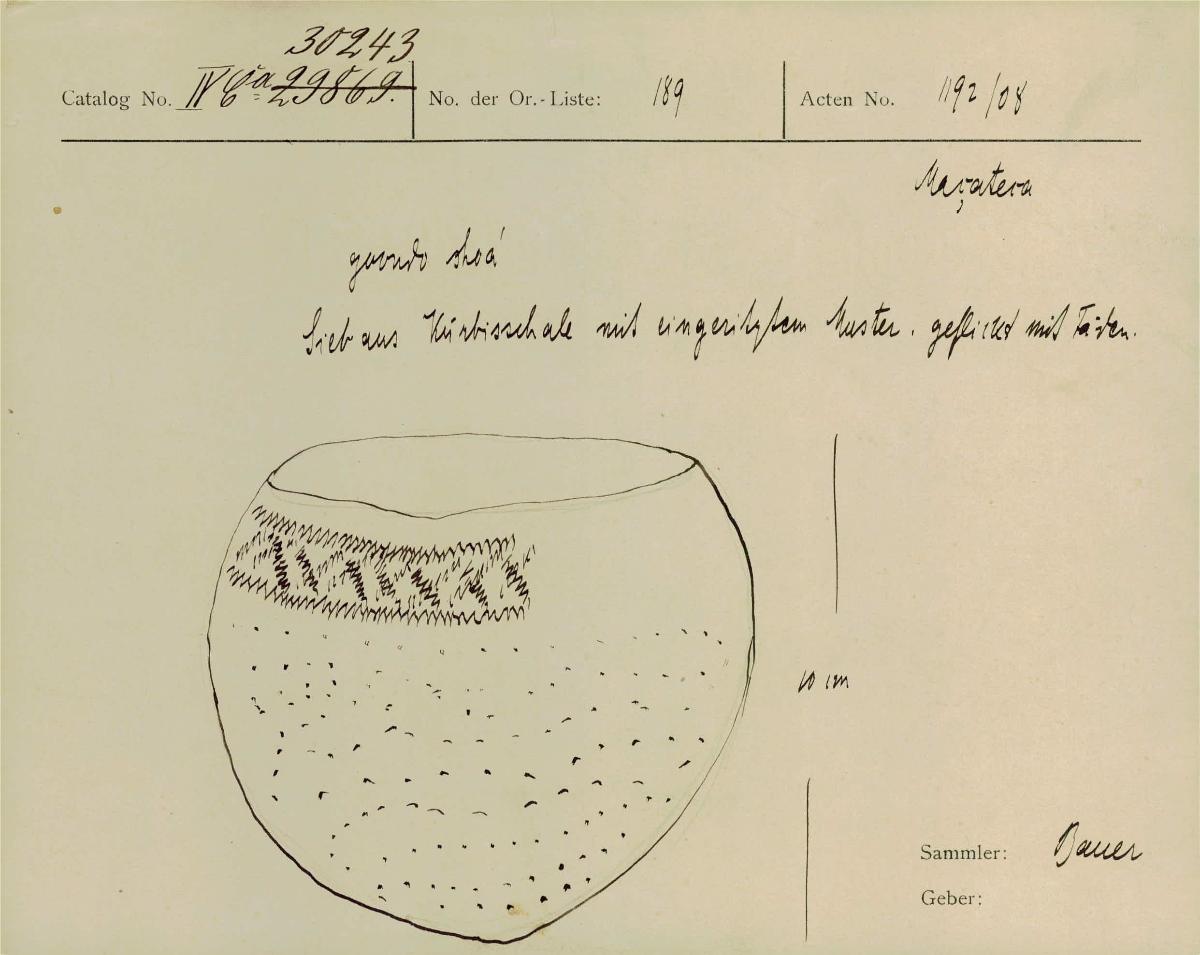 30243
Catalog No. IV Ca 29869. No. der Or.-Liste: 189 Acten No. 1192/08
Maçateca
shoá
Sieb aus Kürbisschale mit eingeritztem Muster. geflickt mit Fäden.
10 cm
Sammler: Bauer
Geber: